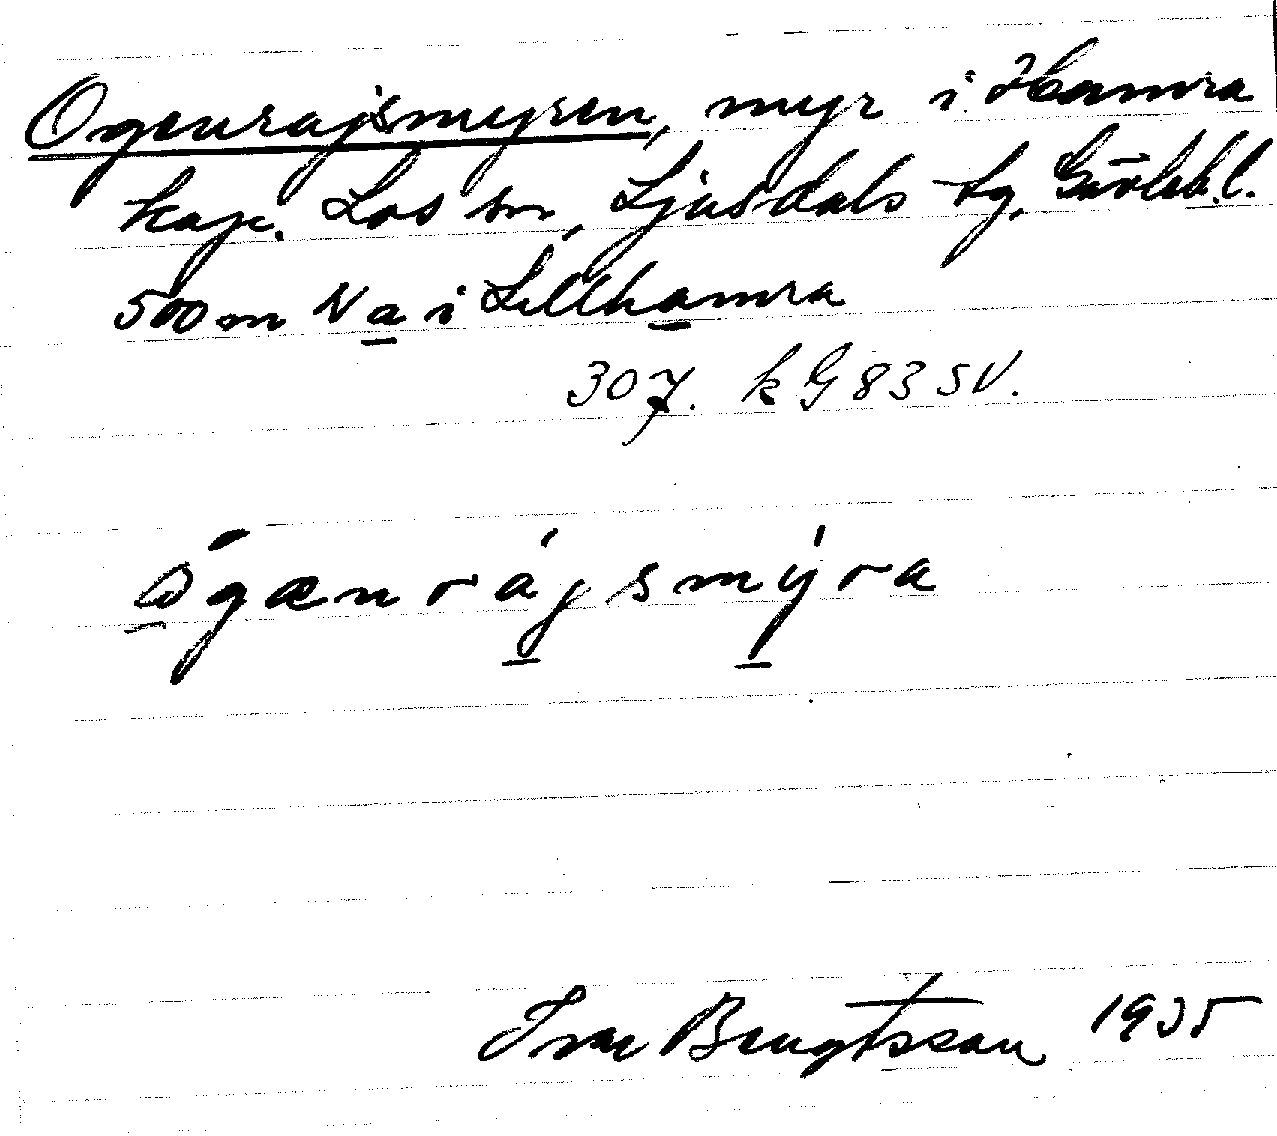 Ogenrajsmyren, myr i Hamra
kap. Los sn, Ljusdals tg, Gävleb.l.
500 m N a i Lillhamra
307. k G 83 SV.
ògænrájsmýra
Ivar Bengtsson 1935